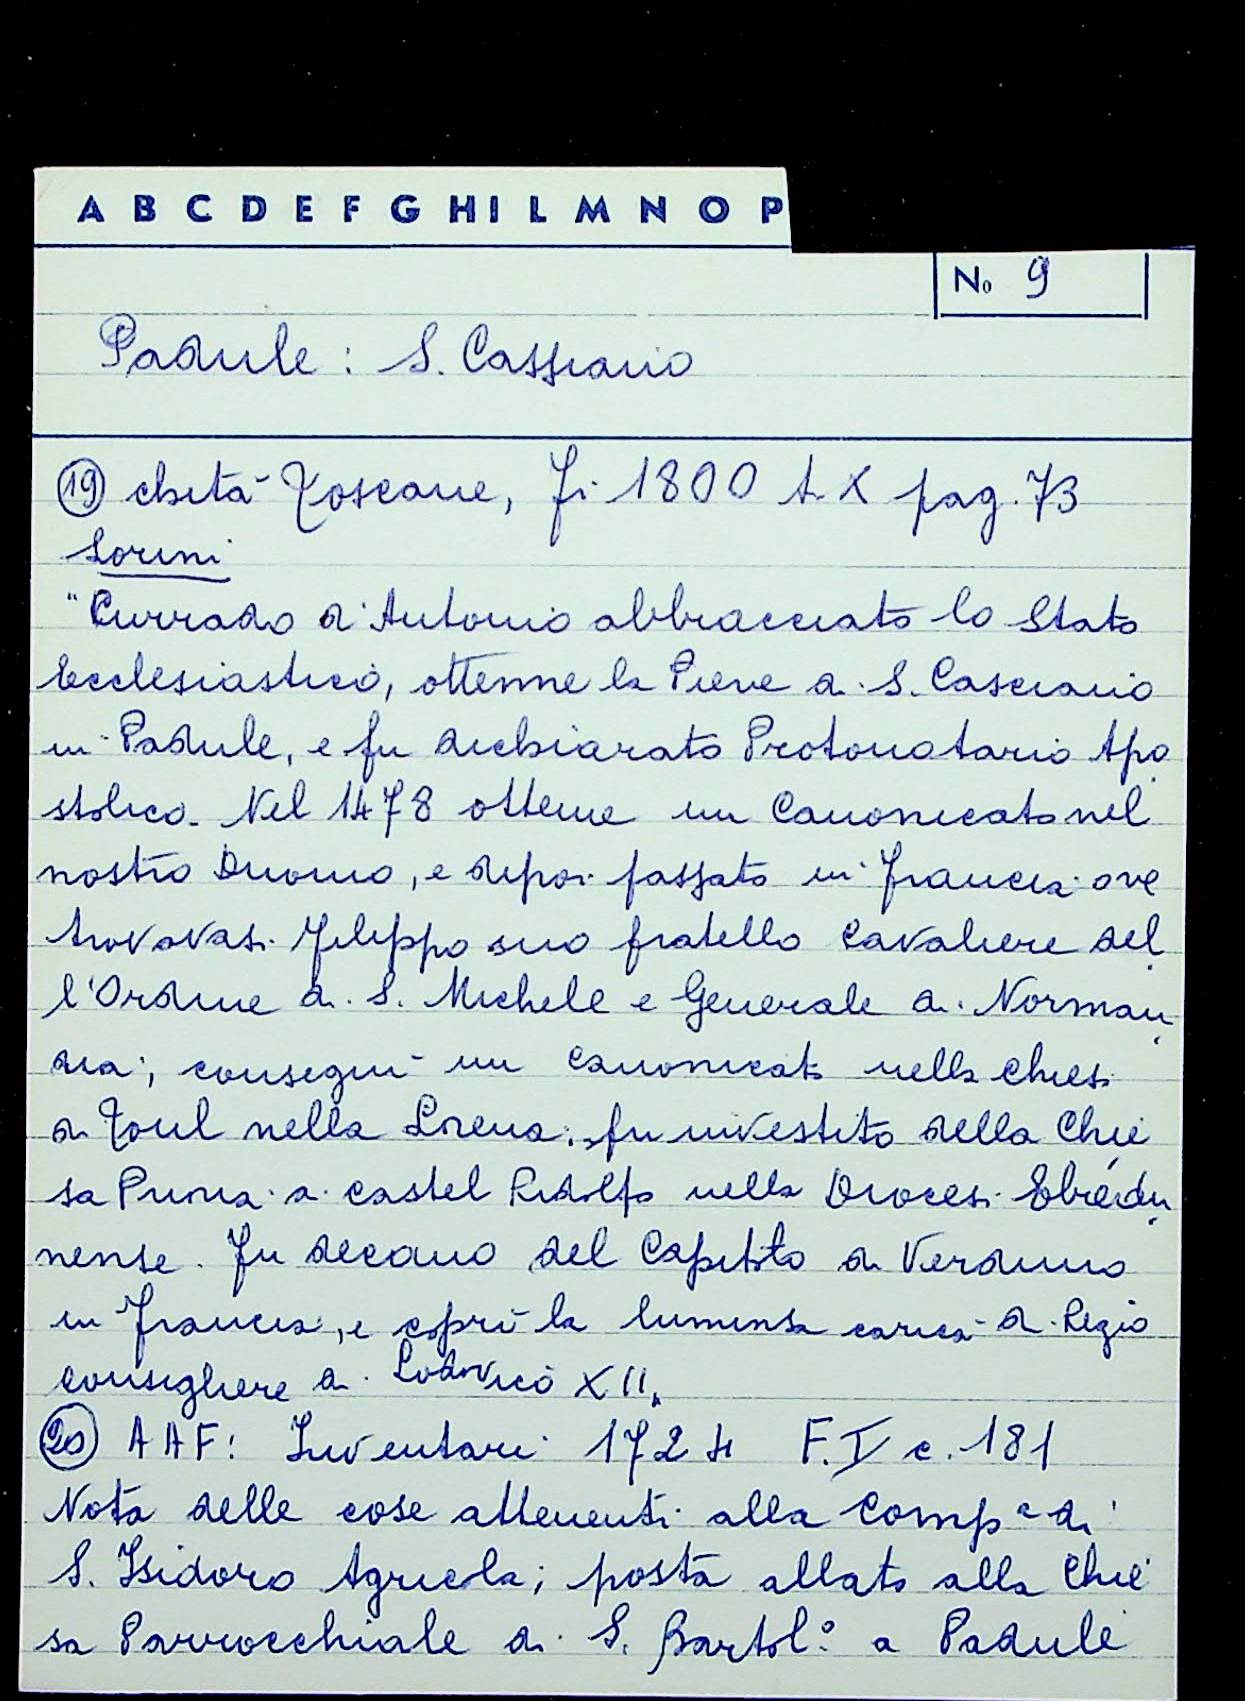 A B C D E F G H I L M N O P
No 9
Padule: S. Cassiano
19 città Toscane, Fi 1800 t. X pag. 73
Lorini
"Currado d'Antonio abbracciato lo Stato
Ecclesiastico, ottenne la Pieve di S. Casciano
in Padule, e fu dichiarato Protonotario Apo
stolico. Nel 1478 ottenne un Canonicato nel
nostro Duomo, e dipoi passato in Francia ove
trovavasi Filippo suo fratello Cavaliere del
l'Ordine di S. Michele e Generale di Norman
dia, conseguì un canonicato nella chiesa
di Toul nella Lorena, fu investito della Chie
sa Prioria di Castel Ridolfo nella Diocesi Ebredu
nense. Fu decano del Capitolo di Verduno
in Francia, e coprì la luminosa carica di Regio
consigliere di Lodovico XII.
20 AAF: Inventari 1724 F. I c. 181
Nota delle cose attenenti alla Compª di
S. Isidoro Agricola; posta allato alla Chie
sa Parrocchiale di S. Bartolº a Padule